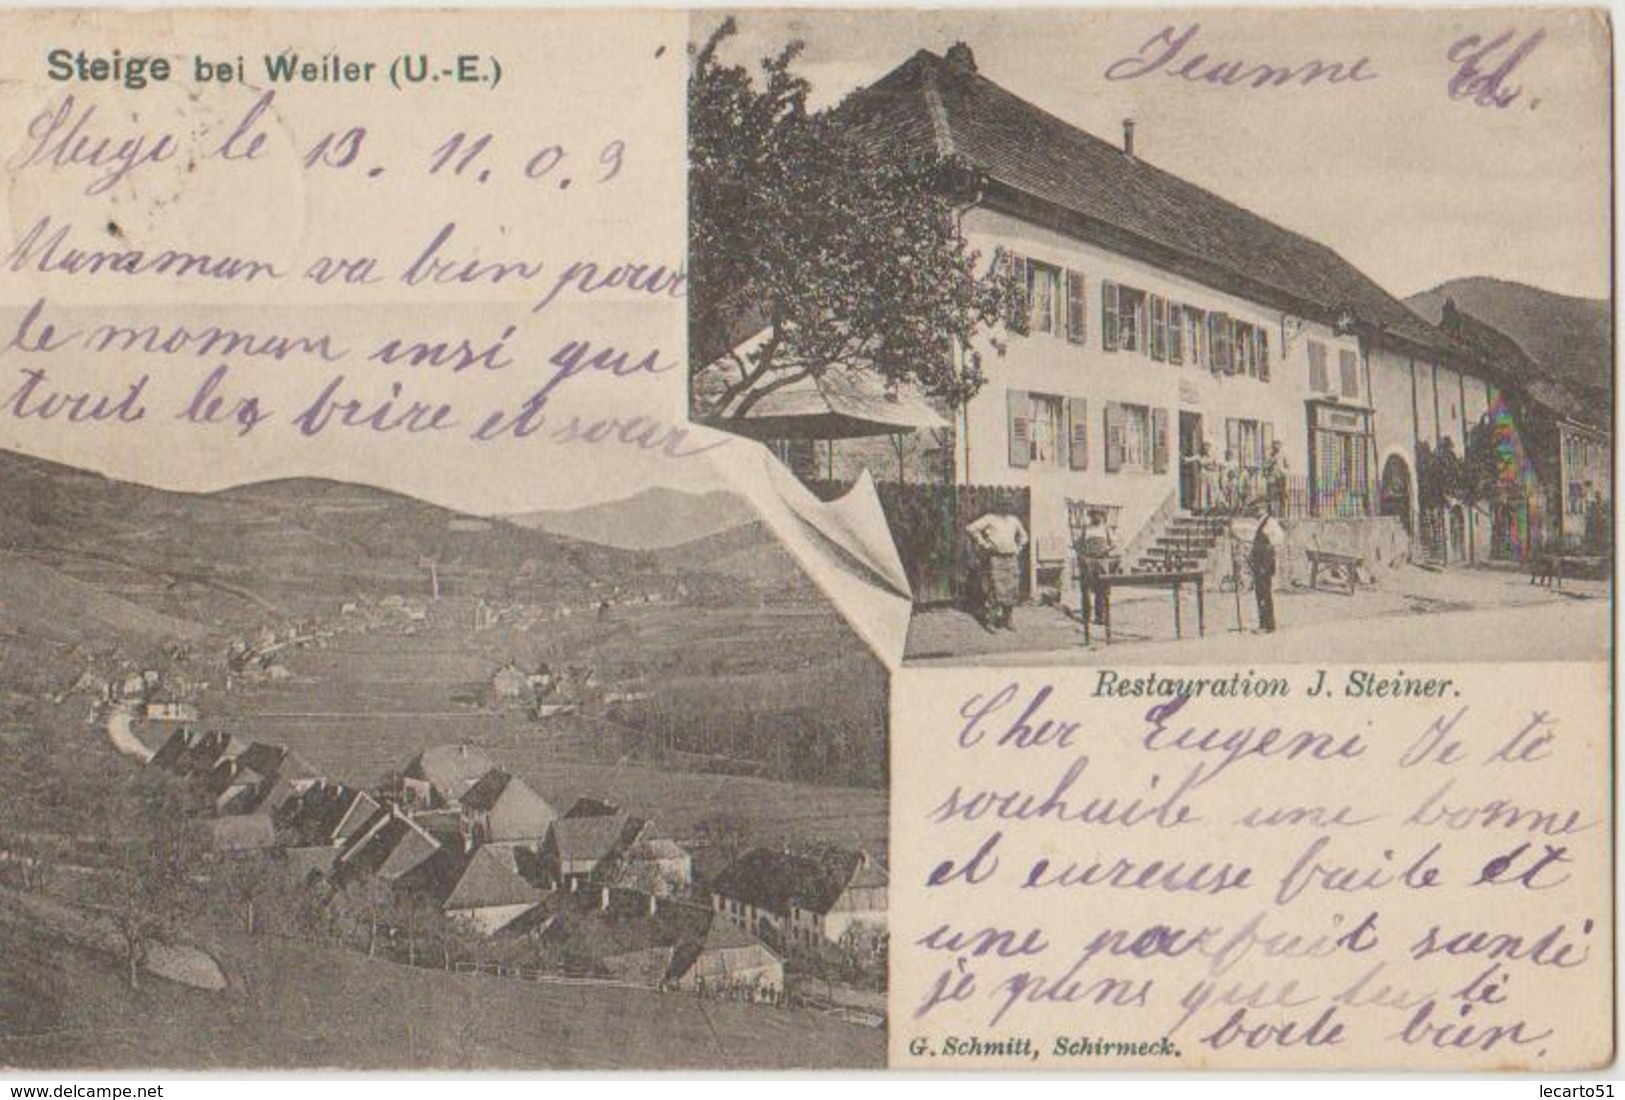 Steige bei Weiler (U.-E.)
Steige le 13. 11. 0.9
Mansman va bien pour
le moman insi que
tout les frire et sour
Jeanne
Restauration J. Steiner.
Cher Eugeni Je te
souhaite une bonne
et eureuse faite et
une parfait santé
je pens que tu te
porte bien.
G. Schmitt, Schirmeck.
www.delcampe.net
lecarto51